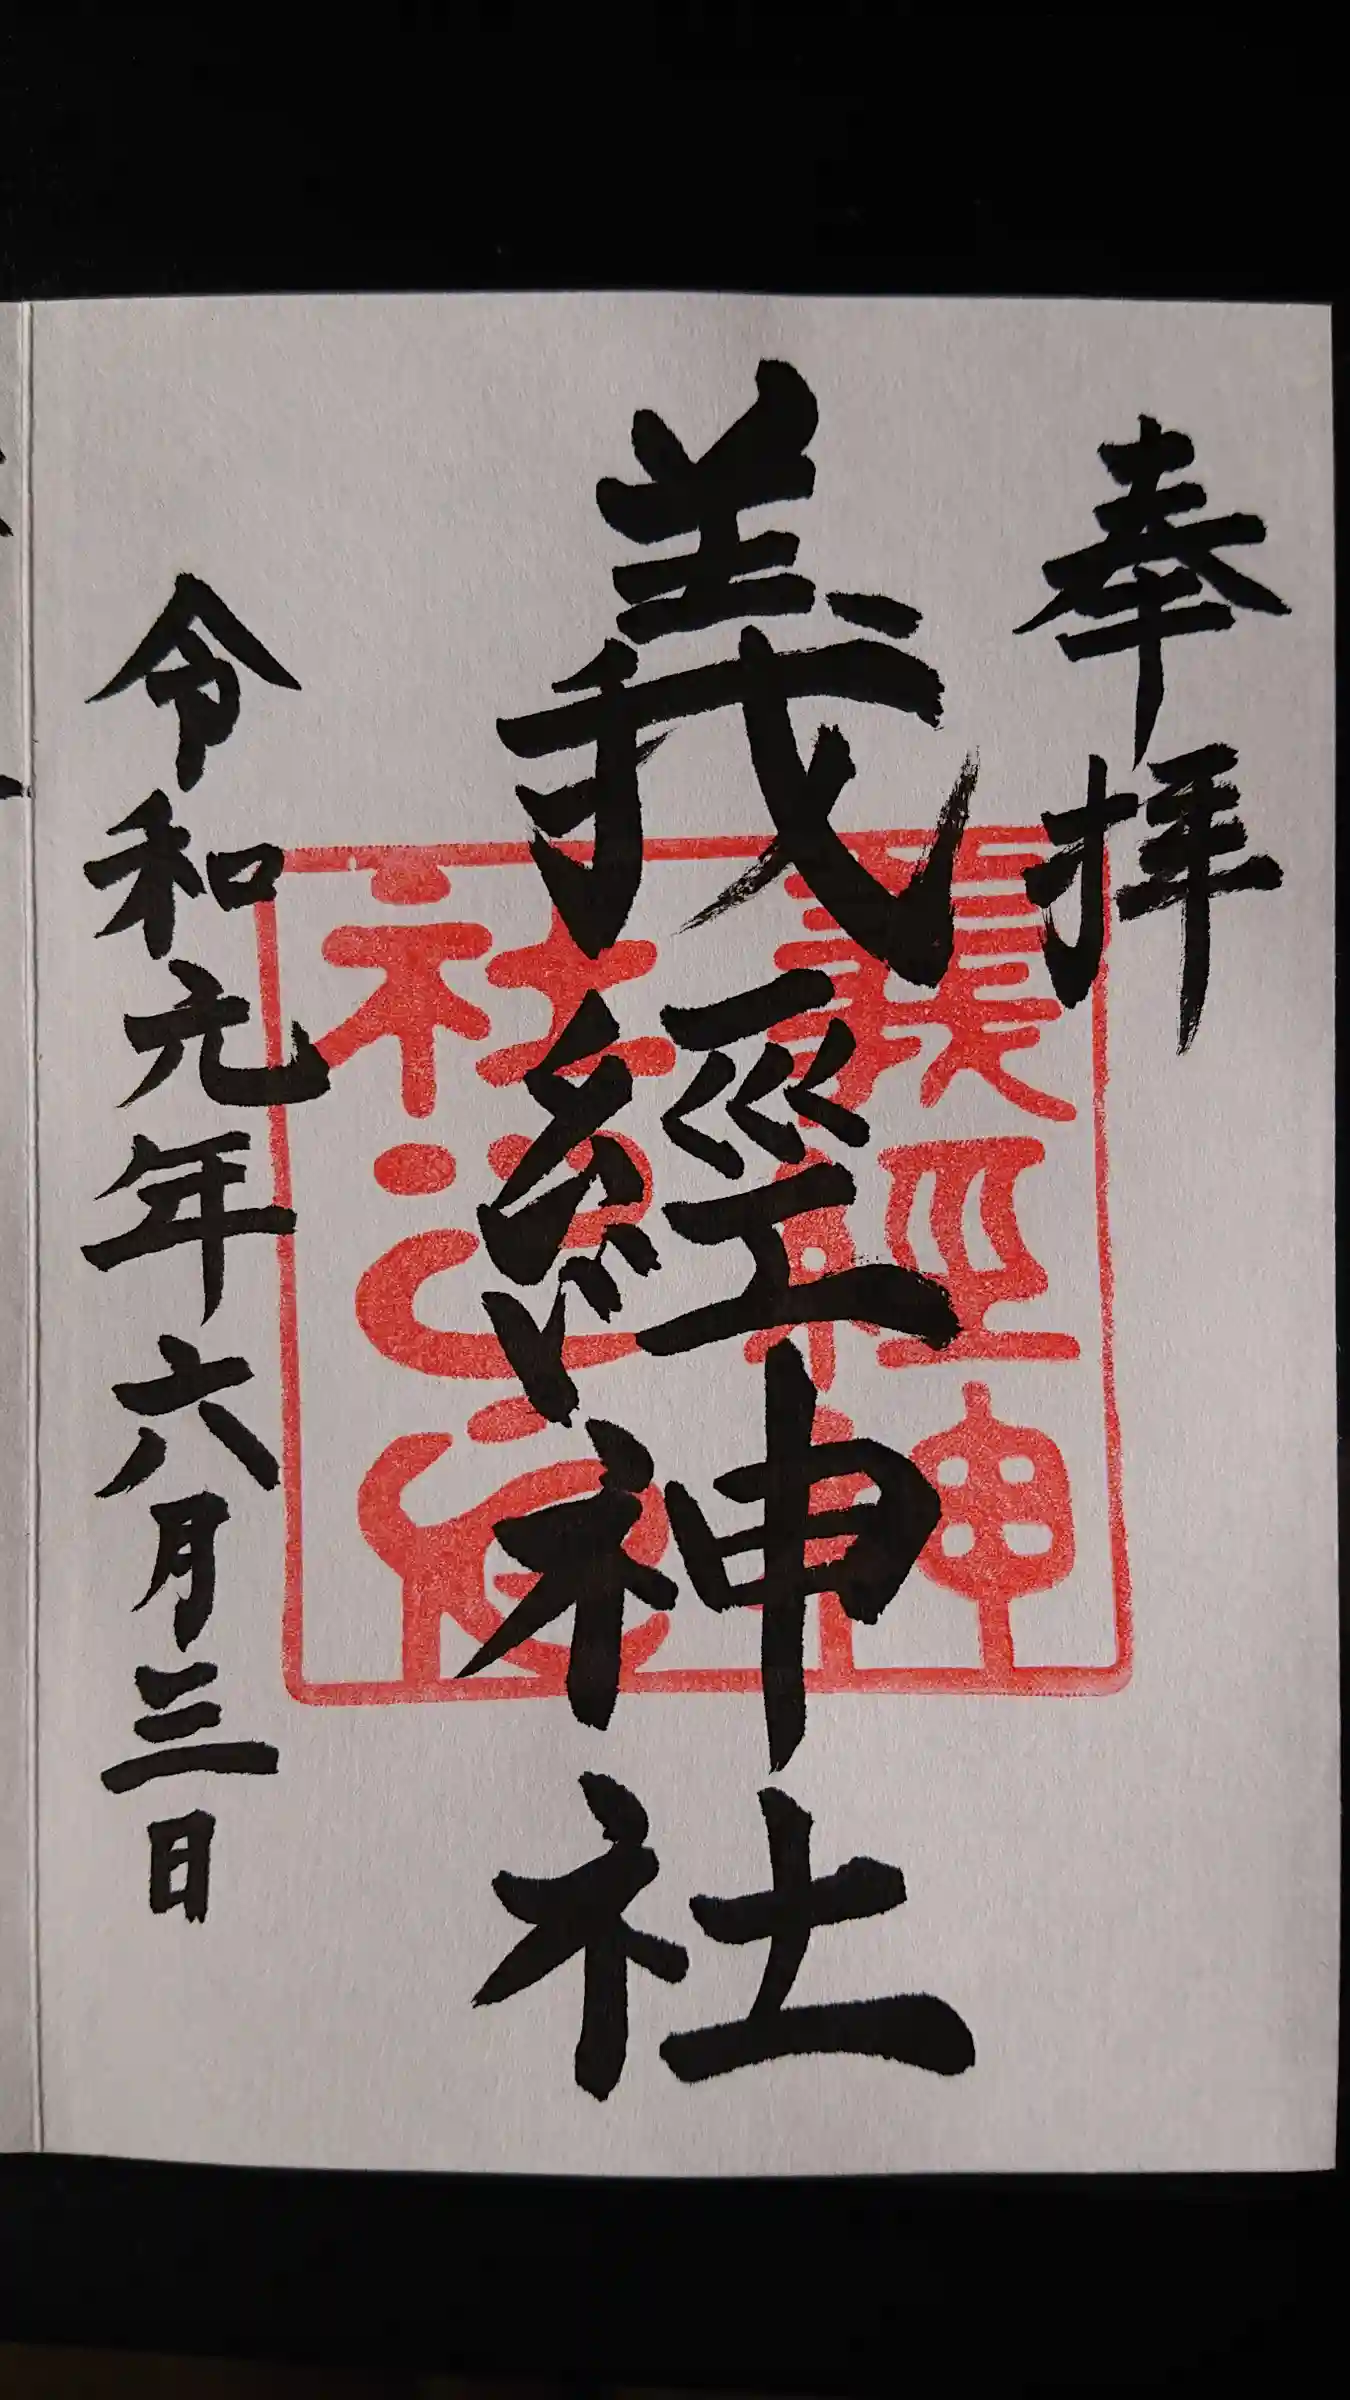 奉拝
義經神社
義経神
社之印
令和元年六月三日